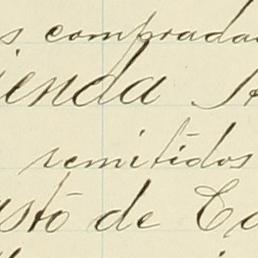 s compradas
ienda
remitidos
astó de Ca